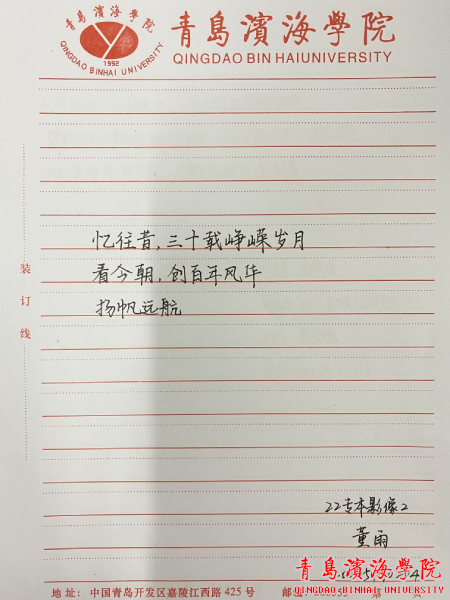 青島濱海學院
QINGDAO BINHAI UNIVERSITY
1992
青島濱海學院
QINGDAO BIN HAIUNIVERSITY
忆往昔，三十载峥嵘岁月
看今朝，创百年风华
扬帆远航
装订线
22专本影像2
董雨
地 址：中国青岛开发区嘉陵江西路 425 号
邮编
青島濱海學院
QINGDAO BINHAI UNIVERSITY